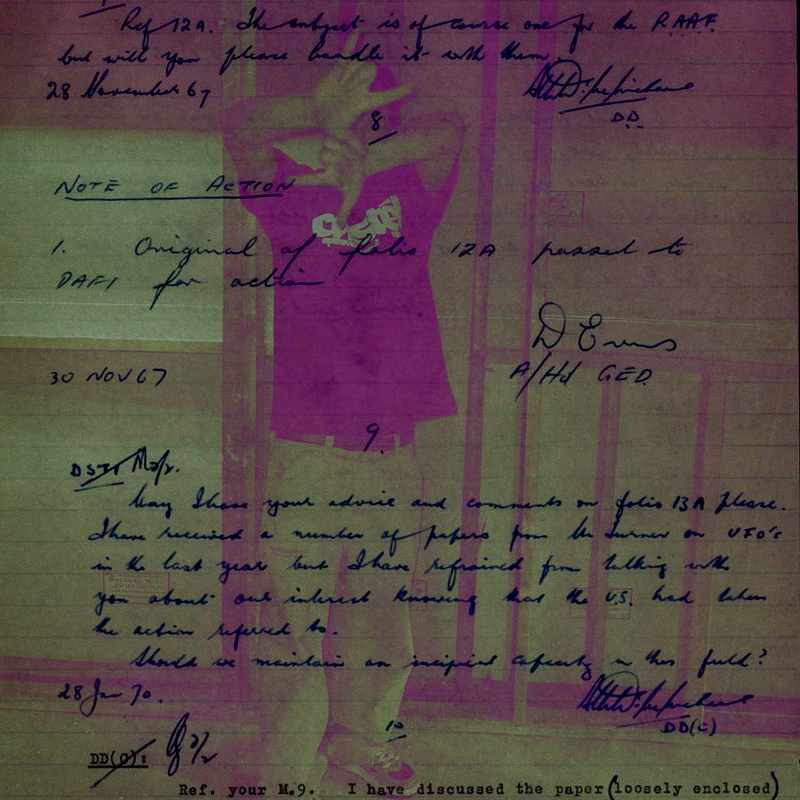 Ref 12A. The subject is of course one for the RAAF.
but will you please handle it with them
28 November 67
DD
8
NOTE OF ACTION
1. Original of folio 12A passed to
DAFI for action
D Evans
30 NOV 67
A/Hd GED
9.
DSTI
May I have your advice and comments on folio 13A please.
I have received a number of papers from Mr Turner on UFO's
in the last year but I have refrained from talking with
you about our interest knowing that the U.S. had taken
the action referred to.
Should we maintain an incipient capacity in this field?
28 Jan 70.
DD(C)
10
DD(C):
Ref. your M.9. I have discussed the paper (loosely enclosed)